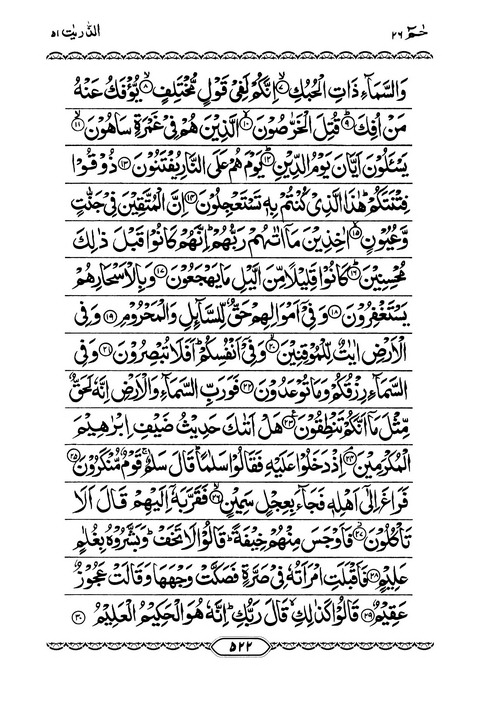 حٰمٓ ٢٦ الذّٰریٰت ٥١
وَالسَّمَآءِ ذَاتِ الْحُبُكِ ۙ﴿۷﴾ اِنَّكُمْ لَفِیْ قَوْلٍ مُّخْتَلِفٍ ۙ﴿۸﴾ یُّؤْفَكُ عَنْهُ
مَنْ اُفِكَ ؕ﴿۹﴾ قُتِلَ الْخَرّٰصُوْنَ ۙ﴿۱۰﴾ الَّذِیْنَ هُمْ فِیْ غَمْرَةٍ سَاهُوْنَ ۙ﴿۱۱﴾
یَسْـَٔلُوْنَ اَیَّانَ یَوْمُ الدِّیْنِ ؕ﴿۱۲﴾ یَوْمَ هُمْ عَلَی النَّارِ یُفْتَنُوْنَ ﴿۱۳﴾ ذُوْقُوْا
فِتْنَتَكُمْ ؕ هٰذَا الَّذِیْ كُنْتُمْ بِهٖ تَسْتَعْجِلُوْنَ ﴿۱۴﴾ اِنَّ الْمُتَّقِیْنَ فِیْ جَنّٰتٍ
وَّعُیُوْنٍ ۙ﴿۱۵﴾ اٰخِذِیْنَ مَاۤ اٰتٰىهُمْ رَبُّهُمْ ؕ اِنَّهُمْ كَانُوْا قَبْلَ ذٰلِكَ
مُحْسِنِیْنَ ؕ﴿۱۶﴾ كَانُوْا قَلِیْلًا مِّنَ الَّیْلِ مَا یَهْجَعُوْنَ ﴿۱۷﴾ وَبِالْاَسْحَارِ هُمْ
یَسْتَغْفِرُوْنَ ﴿۱۸﴾ وَفِیْۤ اَمْوَالِهِمْ حَقٌّ لِّلسَّآئِلِ وَالْمَحْرُوْمِ ﴿۱۹﴾ وَفِی
الْاَرْضِ اٰیٰتٌ لِّلْمُوْقِنِیْنَ ۙ﴿۲۰﴾ وَفِیْۤ اَنْفُسِكُمْ ؕ اَفَلَا تُبْصِرُوْنَ ﴿۲۱﴾ وَفِی
السَّمَآءِ رِزْقُكُمْ وَمَا تُوْعَدُوْنَ ﴿۲۲﴾ فَوَرَبِّ السَّمَآءِ وَالْاَرْضِ اِنَّهٗ لَحَقٌّ
مِّثْلَ مَاۤ اَنَّكُمْ تَنْطِقُوْنَ ﴿۲۳﴾ هَلْ اَتٰىكَ حَدِیْثُ ضَیْفِ اِبْرٰهِیْمَ
الْمُكْرَمِیْنَ ۘ﴿۲۴﴾ اِذْ دَخَلُوْا عَلَیْهِ فَقَالُوْا سَلٰمًا ؕ قَالَ سَلٰمٌ ۚ قَوْمٌ مُّنْكَرُوْنَ ﴿۲۵﴾
فَرَاغَ اِلٰۤی اَهْلِهٖ فَجَآءَ بِعِجْلٍ سَمِیْنٍ ۙ﴿۲۶﴾ فَقَرَّبَهٗۤ اِلَیْهِمْ قَالَ اَلَا
تَاْكُلُوْنَ ﴿۲۷﴾ فَاَوْجَسَ مِنْهُمْ خِیْفَةً ؕ قَالُوْا لَا تَخَفْ ؕ وَبَشَّرُوْهُ بِغُلٰمٍ
عَلِیْمٍ ﴿۲۸﴾ فَاَقْبَلَتِ امْرَاَتُهٗ فِیْ صَرَّةٍ فَصَكَّتْ وَجْهَهَا وَقَالَتْ عَجُوْزٌ
عَقِیْمٌ ﴿۲۹﴾ قَالُوْا كَذٰلِكِ ۙ قَالَ رَبُّكِ ؕ اِنَّهٗ هُوَ الْحَكِیْمُ الْعَلِیْمُ ﴿۳۰﴾
۵۲۲